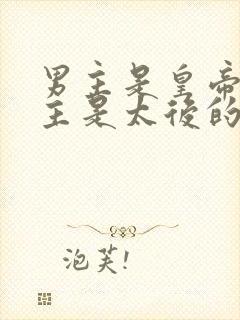 男主是皇帝
主是太後的
泡芙!